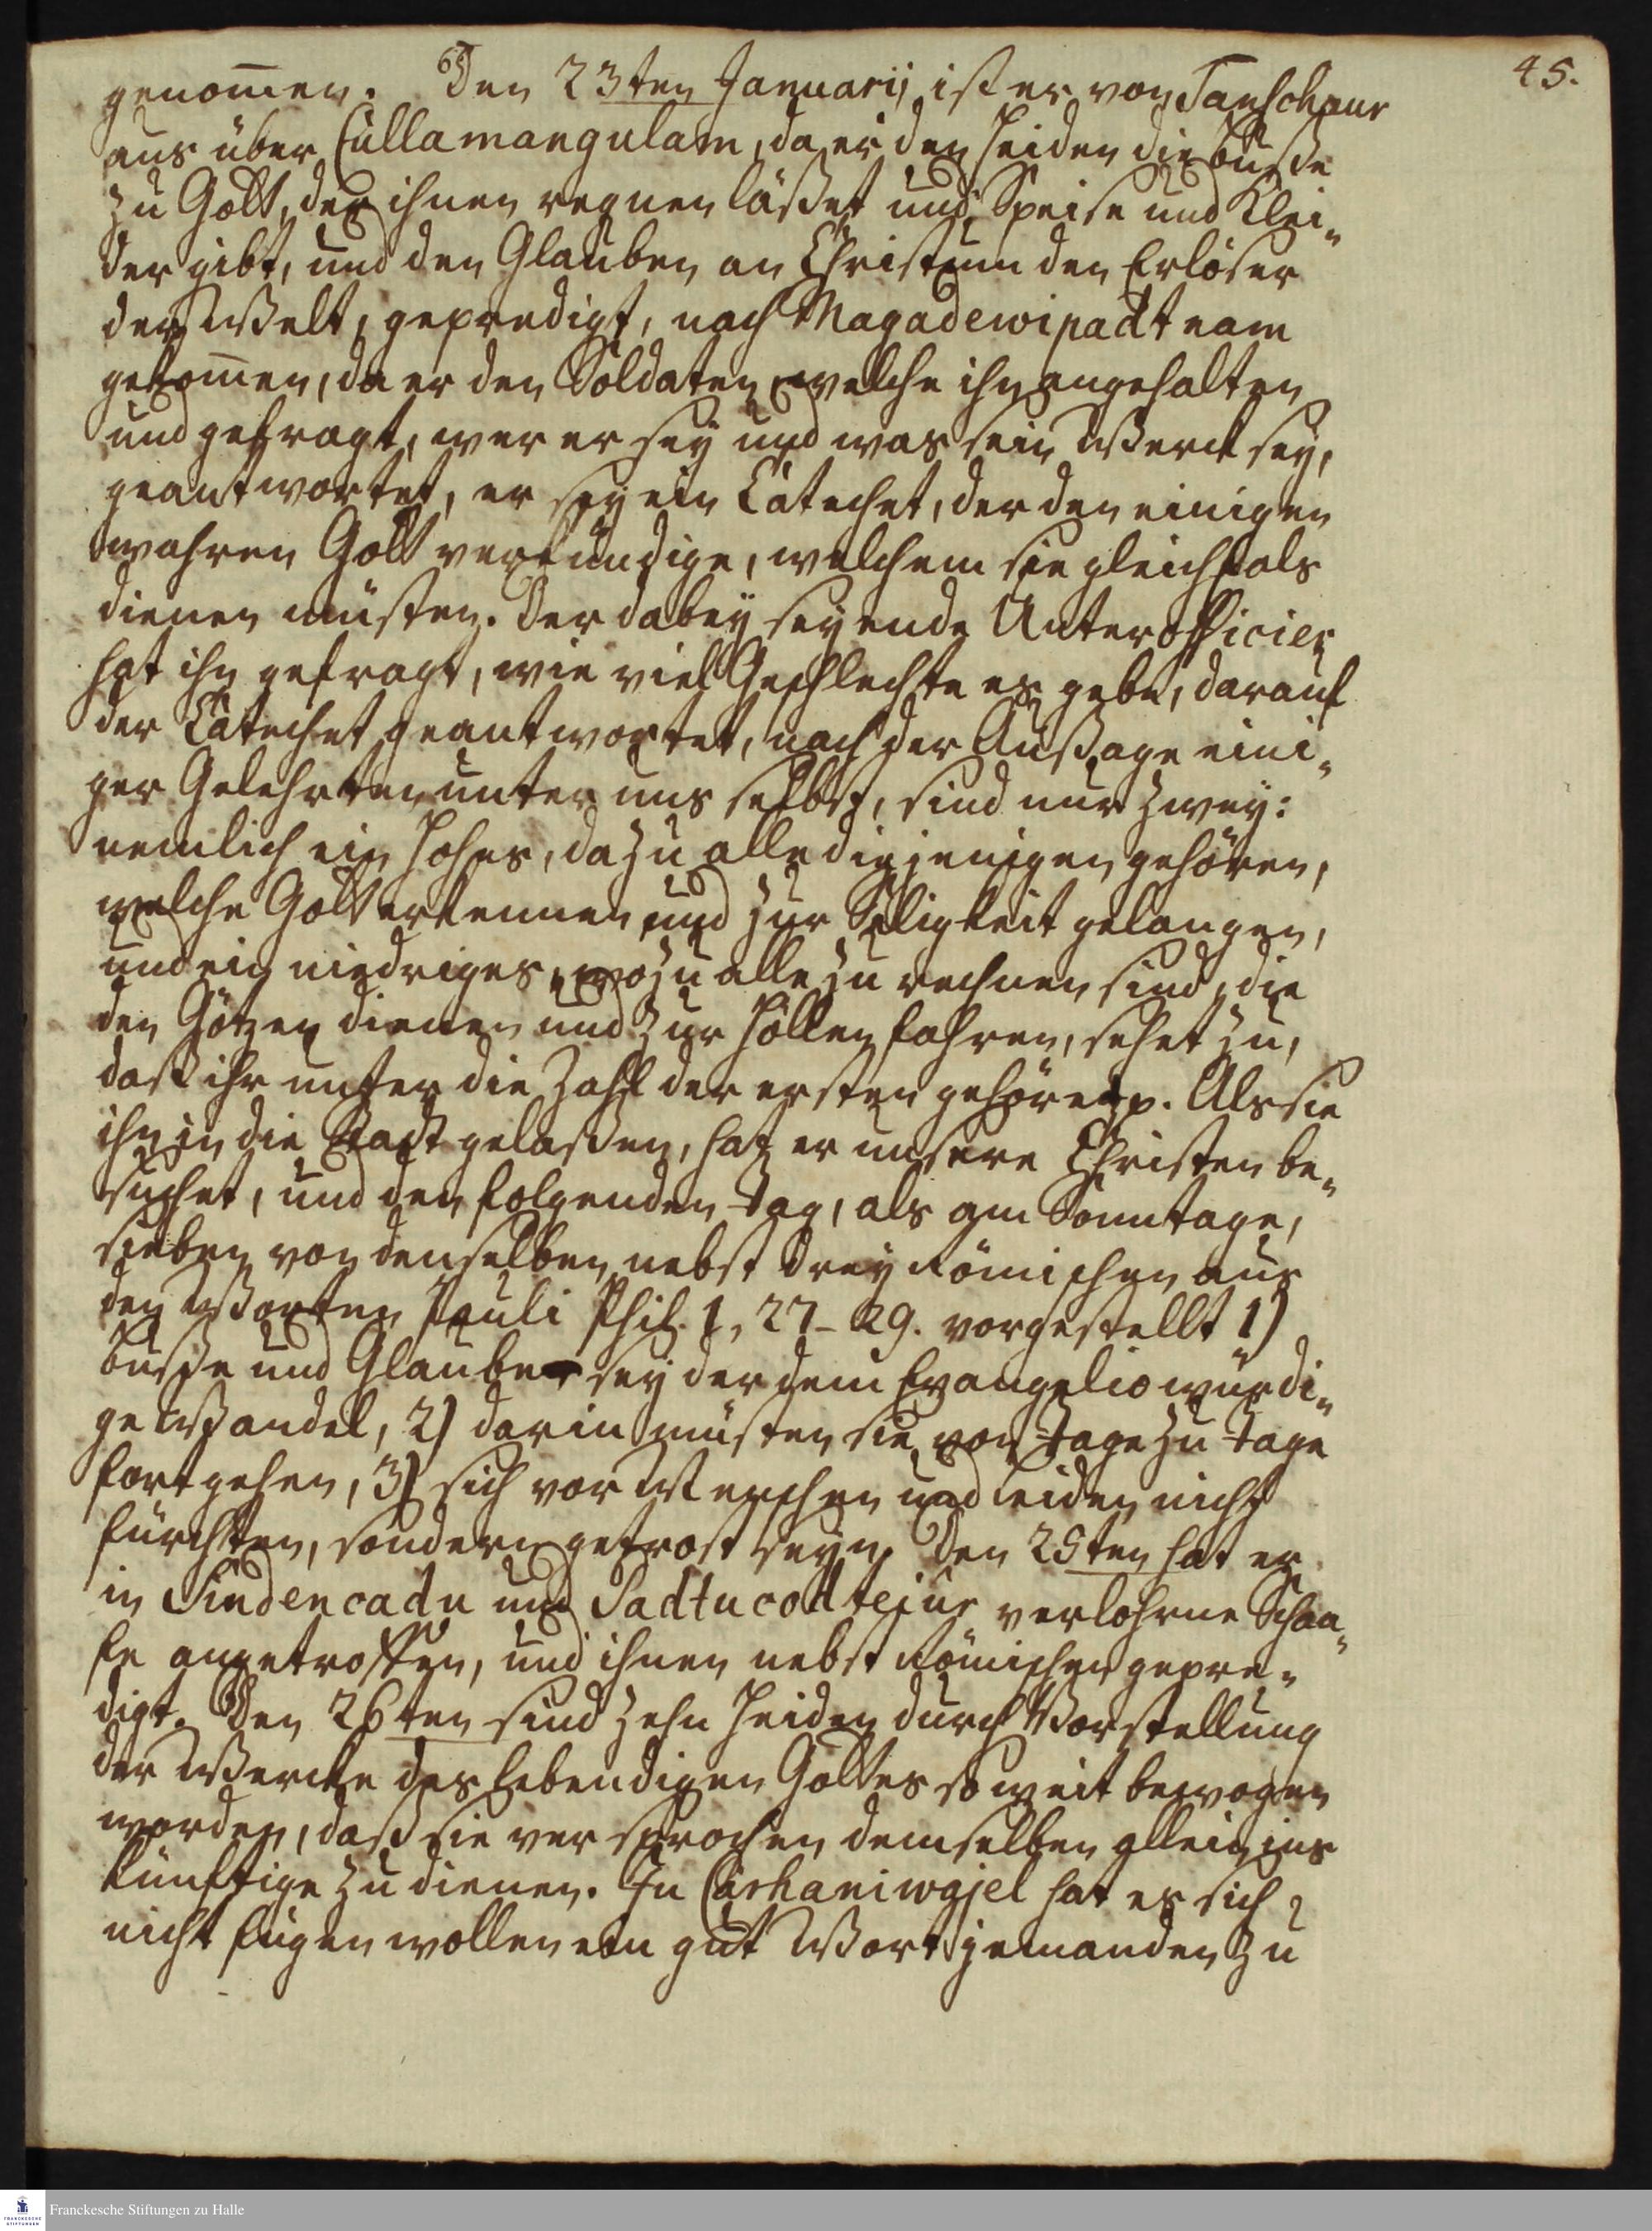 45.
genom̄en. Den 23ten Januarij ist er von Tanschaur
aus über Cullamangulam, da er den Heiden die Buße
zu Gott, der ihnen regnen läßet und Speise und Klei-
der gibt, und den Glauben an Christum den Erlöser
der Welt, geprediget, nach Magadewipadtnam
gekom̄en, da er den Soldaten, welche ihn angehalten
und gefragt, wer er sey und was sein Werck sey,
geantwortet, er sey ein Catechet, der den einigen
wahren Gott verkündige, welchem sie gleichfals
dienen müsten. Der dabey seyende Unterofficier
hat ihn gefragt, wie viel Geschlechte es gebe, darauf
der Catechet geantwortet, nach der Außage eini-
ger Gelehrten unter uns selbst, sind nur zwey:
nemlich ein hohes, dazu alle diejenigen gehören,
welche Gott erkennen und zur Seligkeit gelangen,
und ein niedriges, wozu alle zu rechnen sind, die
den Götzen dienen und zur Höllen fahren, sehet zu,
daß ihr unter die Zahl der ersten gehöret p. Als sie
ihn in die Stadt gelaßen, hat er unsere Christen be-
suchet, und den folgenden Tag, als am Sonntage,
sieben von denselben nebst drey Römischen aus
den Worten Pauli Phil. 1, 27-29. vorgestellt 1)
Buße und Glaube sey der dem Evangelio würdi-
ge Wandel, 2) darin müsten sie von Tage zu Tage
fortgehen, 3) sich vor Menschen und Leiden nicht
fürchten, sondern getrost seyn. Den 25ten hat er
in Sindencadu und Padtucodtejur verlohrne Schaa-
fe angetroffen, und ihnen nebst Römischen gepre-
digt. Den 26ten sind zehn Heiden durch Vorstellung
der Wercke des lebendigen Gottes so weit bewogen
worden, daß sie versprochen demselben allein ins
künftige zu dienen. In Carhaniwajel hat es sich
nicht fügen wollen ein gut Wort jemanden zu
Franckesche Stiftungen zu Halle
FRANCKESCHE
STIFTUNGEN